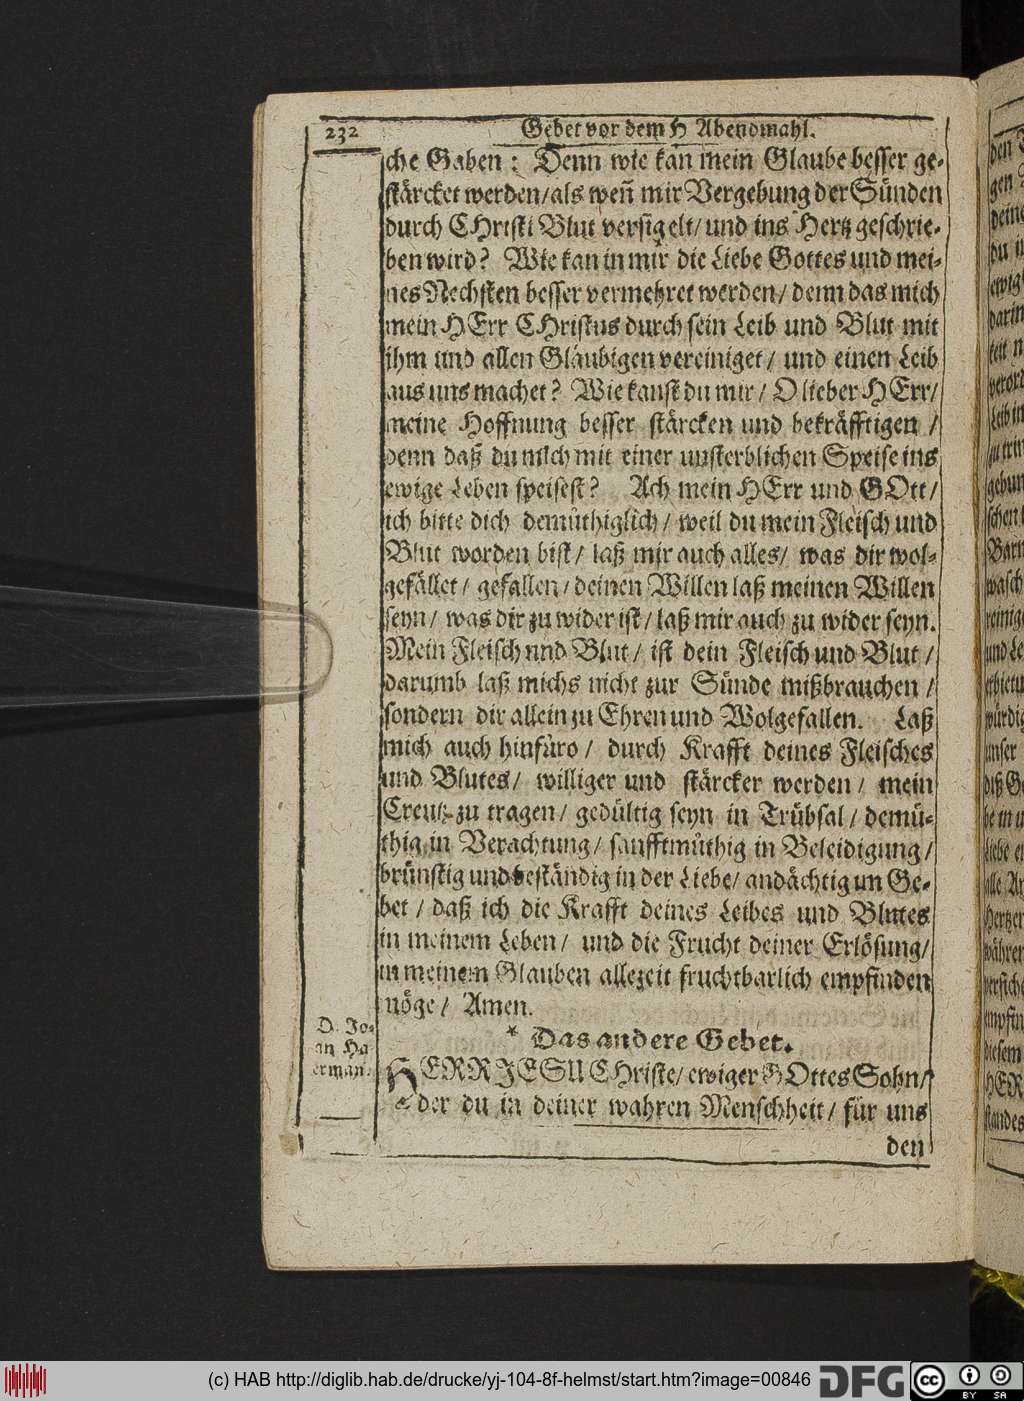 232
Gebet vor dem H Abendmahl.
che Gaben: Denn wie kan mein Glaube besser ge-
stärcket werden/als weñ mir Vergebung der Sünden
durch CHristi Blut versigelt/ und ins Hertz geschrie-
ben wird? Wie kan in mir die Liebe Gottes und mei-
nes Nechsten besser vermehret werden/ denn das mich
mein HErr CHristus durch sein Leib und Blut mit
ihm und allen Gläubigen vereiniget/ und einen Leib
aus uns machet? Wie kanst du mir/ O lieber HErr/
meine Hoffnung besser stärcken und bekräfftigen /
denn daß du mich mit einer unsterblichen Speise ins
ewige Leben speisest? Ach mein HErr und GOtt/
ich bitte dich demüthiglich/ weil du mein Fleisch und
Blut worden bist/ laß mir auch alles/ was dir wol-
gefället/ gefallen/deinen Willen laß meinen Willen
seyn/ was dir zu wider ist/laß mir auch zu wider seyn.
Mein Fleisch und Blut/ ist dein Fleisch und Blut/
darumb laß michs nicht zur Sünde mißbrauchen /
sondern dir allein zu Ehren und Wolgefallen. Laß
mich auch hinfüro/ durch Krafft deines Fleisches
und Blutes/ williger und stärcker werden/ mein
Creutz zu tragen/ gedültig seyn in Trübsal/ demü-
thig in Verachtung/ sanfftmüthig in Beleidigung/
brünstig und beständig in der Liebe/ andächtig im Ge-
bet/ daß ich die Krafft deines Leibes und Blutes
in meinem Leben/ und die Frucht deiner Erlösung/
in meinem Glauben allezeit fruchtbarlich empfinden
möge/ Amen.
* Das andere Gebet.
D. Jo-
an Ha
erman.
HERR JESU CHriste/ ewiger GOttes Sohn/
der du in deiner wahren Menschheit/ für uns
den
(c) HAB http://diglib.hab.de/drucke/yj-104-8f-helmst/start.htm?image=00846
DFG
cc BY SA